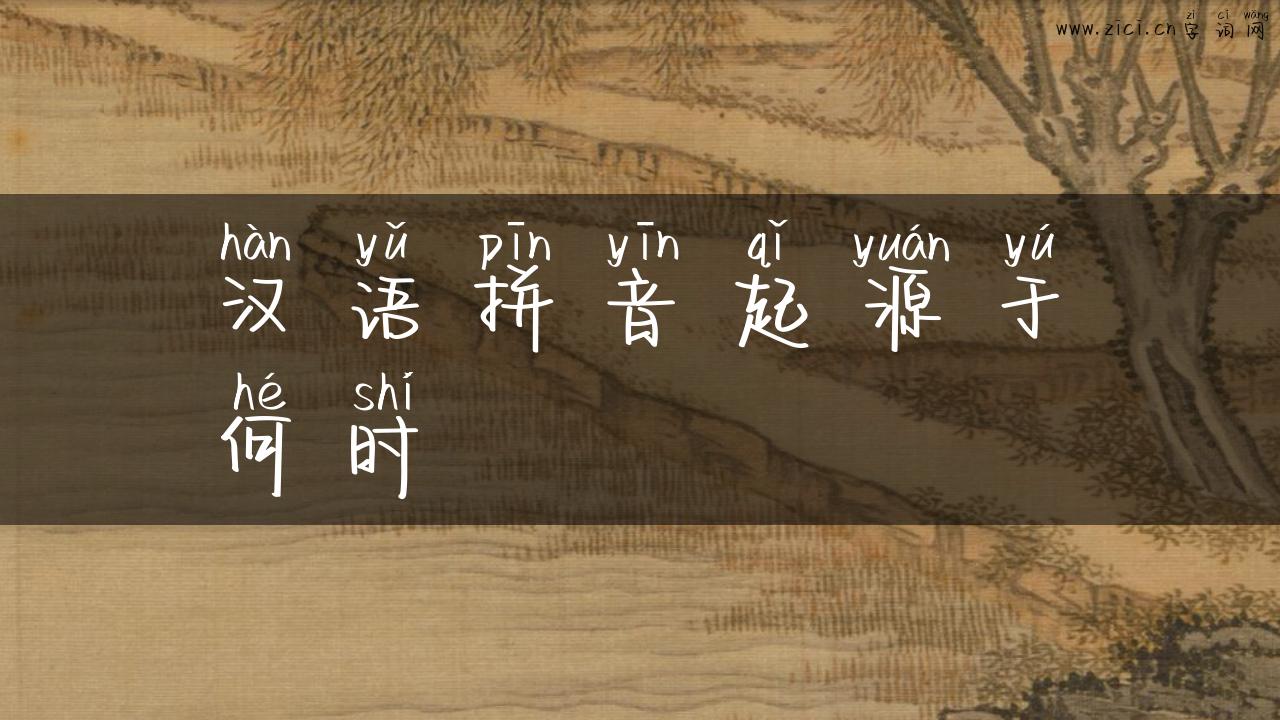 zì cí wǎng
www.zici.cn字词网
hàn yǔ pīn yīn qǐ yuán yú
汉语拼音起源于
hé shí
何时